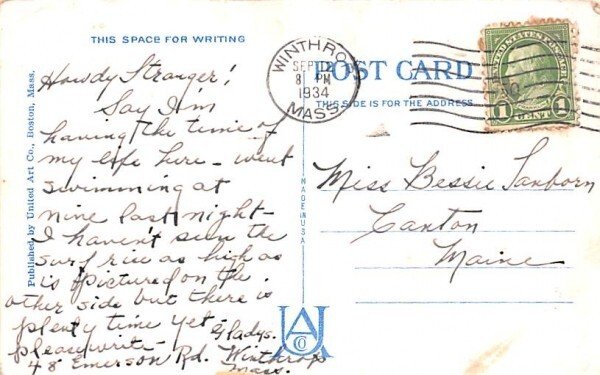 THIS SPACE FOR WRITING
Howdy Stranger!
Say I'm
having the time of
my life here - went
swimming at
nine last night -
I haven't seen the
surf rise as high as
is pictured on the
other side but there is
plenty time yet -
please write - Gladys.
48 Emerson Rd. Winthrop
Mass.
Published by United Art Co., Boston, Mass.
MADE IN USA
UA
Co
POST CARD
THIS SIDE IS FOR THE ADDRESS
WINTHROP
SEP 12
8 PM
1934
MASS
UNITED STATES POSTAGE
1 CENT 1
Miss Bessie Sanborn
Canton
Maine